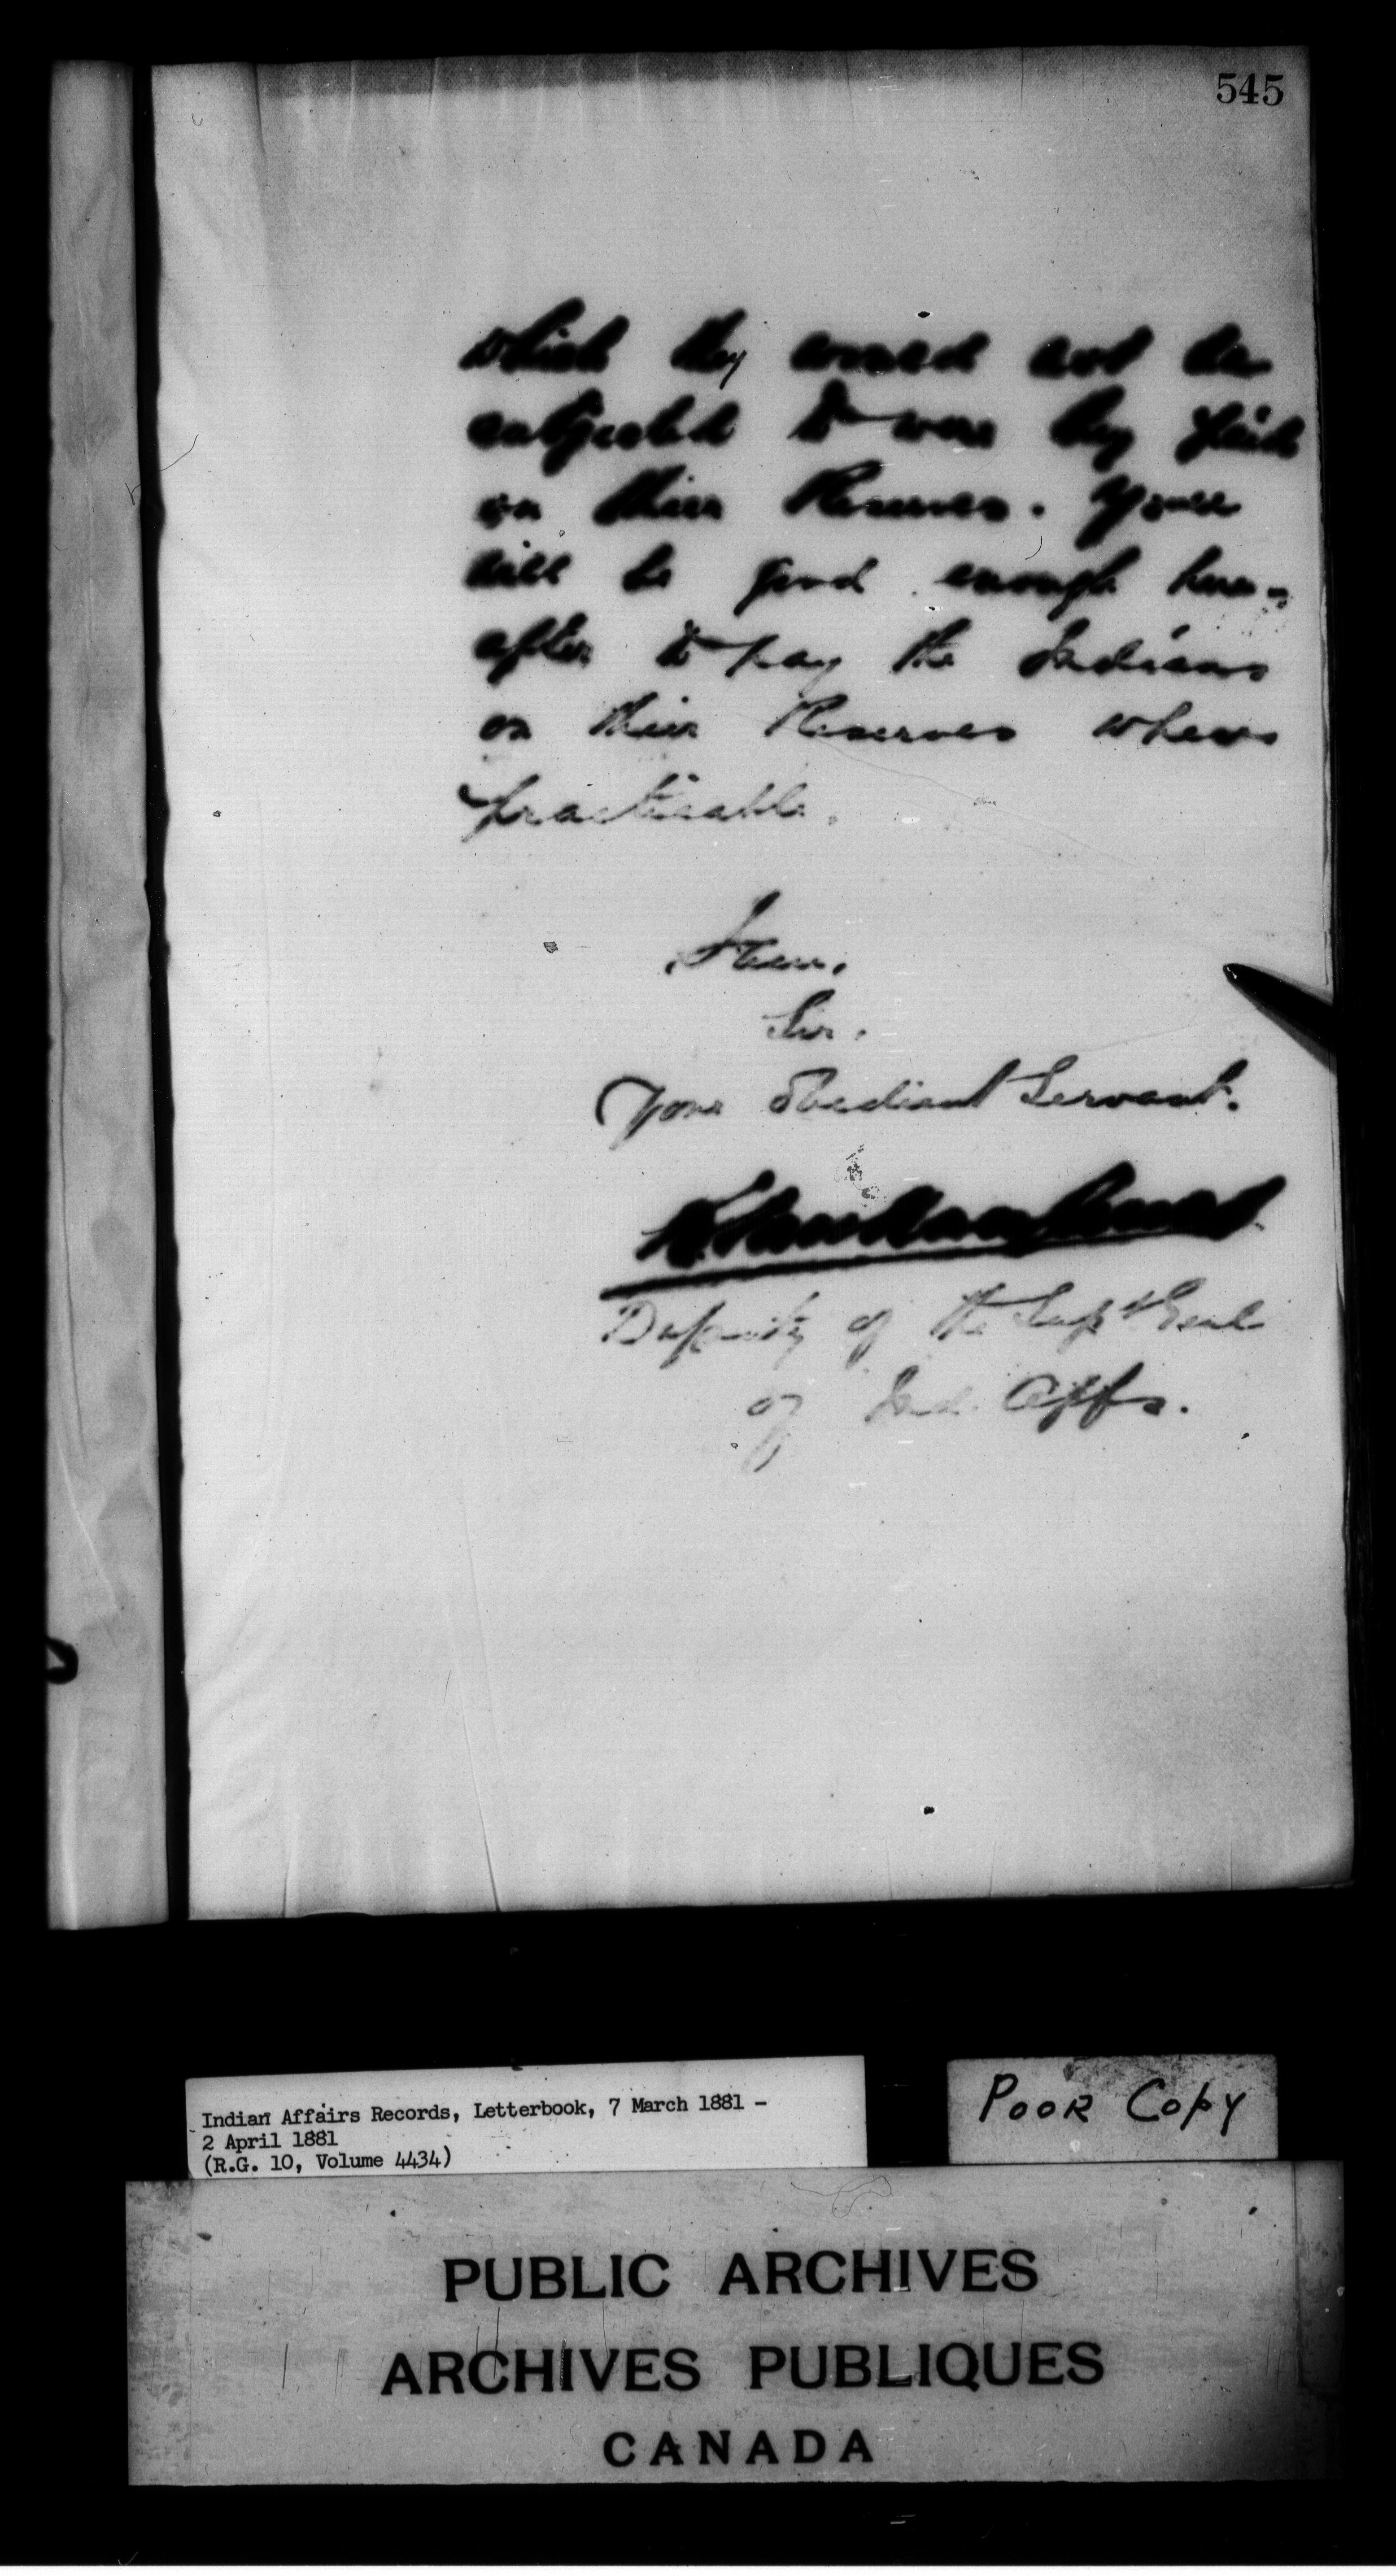 545
which they would not be
subjected to were they paid
on their Reserves. You
will be good enough here-
after to pay the Indians
on their Reserves where
practicable.
I have,
Sir.
Your Obedient Servant.
L. VanKoughnet
Deputy of the Supt Genl
of Ind. Affs.
Indian Affairs Records, Letterbook, 7 March 1881 -
2 April 1881
(R.G. 10, Volume 4434)
POOR COPY
PUBLIC ARCHIVES
ARCHIVES PUBLIQUES
CANADA